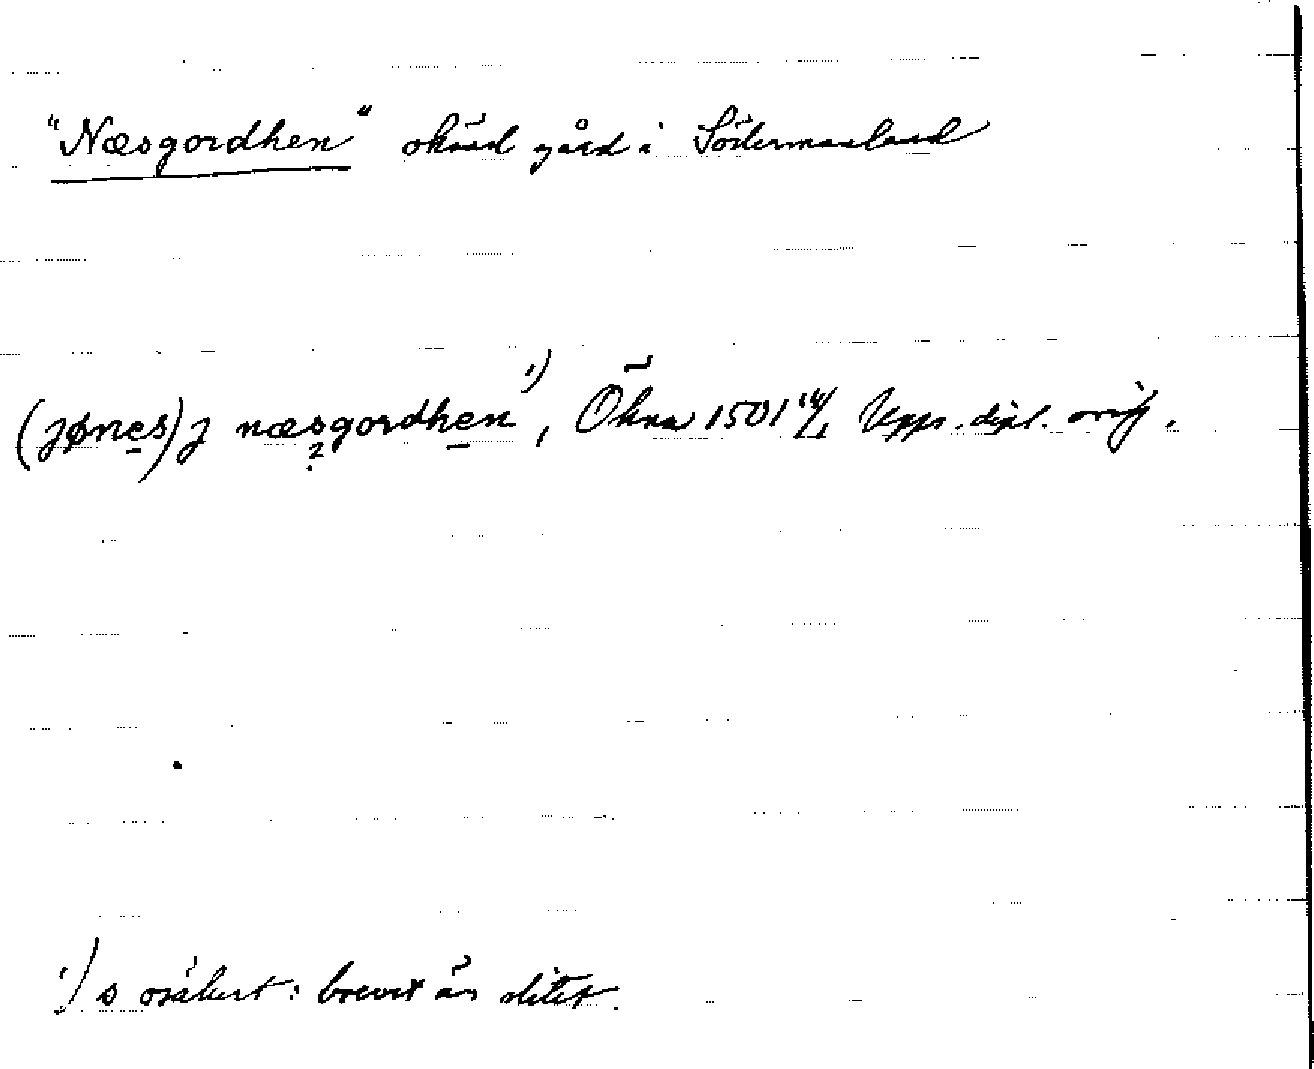 "Næsgordhen" okänd gård i Södermanland
(jønes) j næsgordhen ¹), Ökna 1501 14/1 Upps. dipl. orig.
?
¹) s osäkert: brevet är slitet.